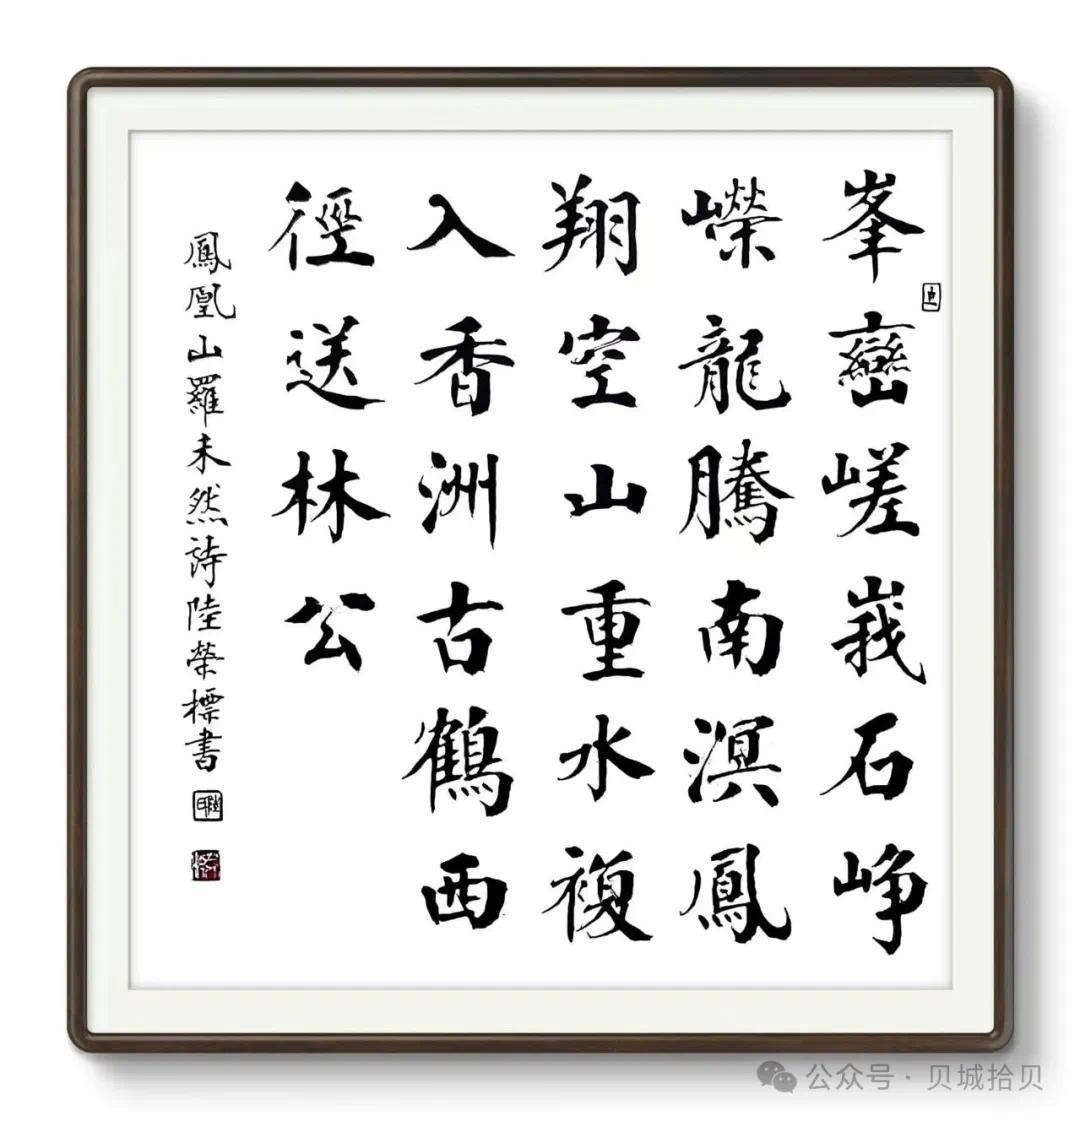 峯巒嵯峩石崢
嶸龍騰南溟鳳
翔空山重水複
入香洲古鶴西
徑送林公
鳳凰山羅未然詩陸榮標書
公众号 · 贝城拾贝